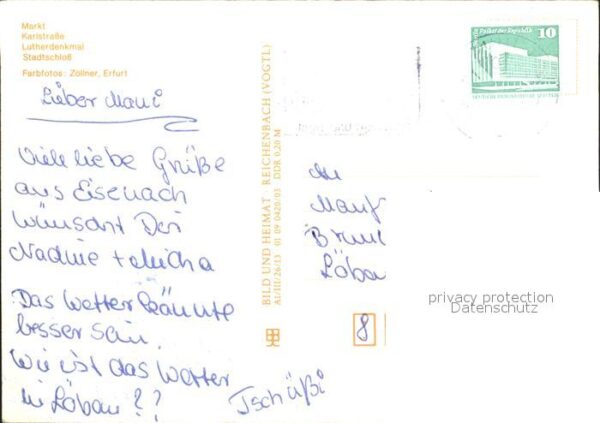 Markt
Karlstraße
Lutherdenkmal
Stadtschloß
Farbfotos: Zöllner, Erfurt
Lieber Mani
Viele liebe Grüße
aus Eisenach
wünscht Dir
Nadine + Micha
Das Wetter könnte
besser sein.
Wie ist das Wetter
in Löbau??
Tschüßi
BILD UND HEIMAT REICHENBACH (VOGTL)
A1/III/26/13 01 09 0420/03 DDR 0,20 M
Palast der Republik
10
An
Manf
Löbau
8
privacy protection
Datenschutz